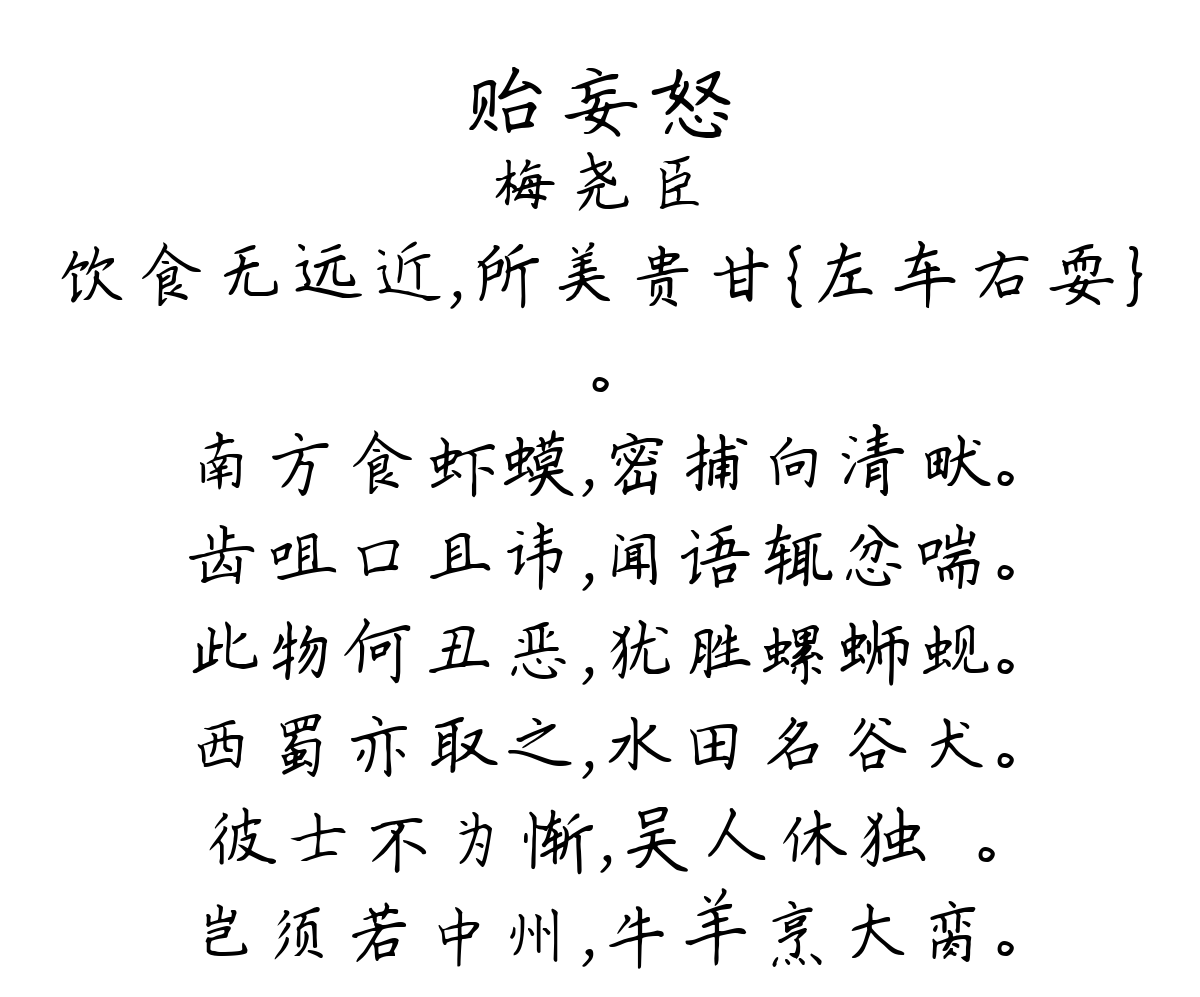 贻妄怒
梅尧臣
饮食无远近,所美贵甘{左车右耍}
。
南方食虾蟆,密捕向清畎。
齿咀口且讳,闻语辄忿喘。
此物何丑恶,犹胜螺蛳蚬。
西蜀亦取之,水田名谷犬。
彼士不为惭,吴人休独 。
岂须若中州,牛羊烹大脔。